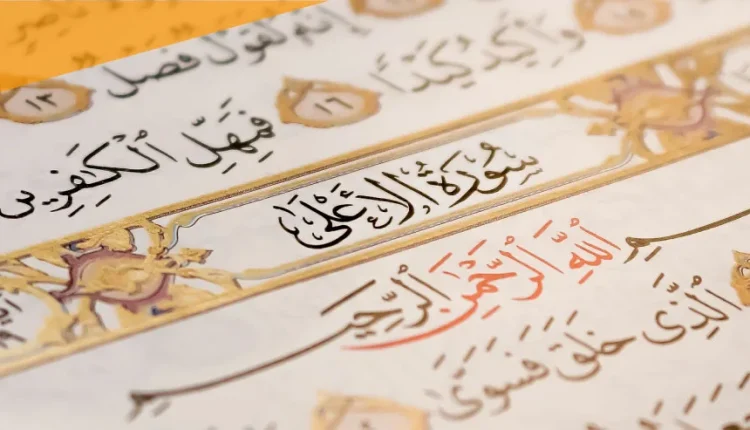 إِنَّهُۥ لَقَوْلٌ فَصْلٌ ١٣
وَأَكِيدُ كَيْدًا ١٦ فَمَهِّلِ ٱلْكَٰفِرِينَ
سُورَةُ الْأَعْلَىٰ
ٱللَّهِ ٱلرَّحْمَٰنِ ٱلرَّحِيمِ
ٱلَّذِى خَلَقَ فَسَوَّىٰ